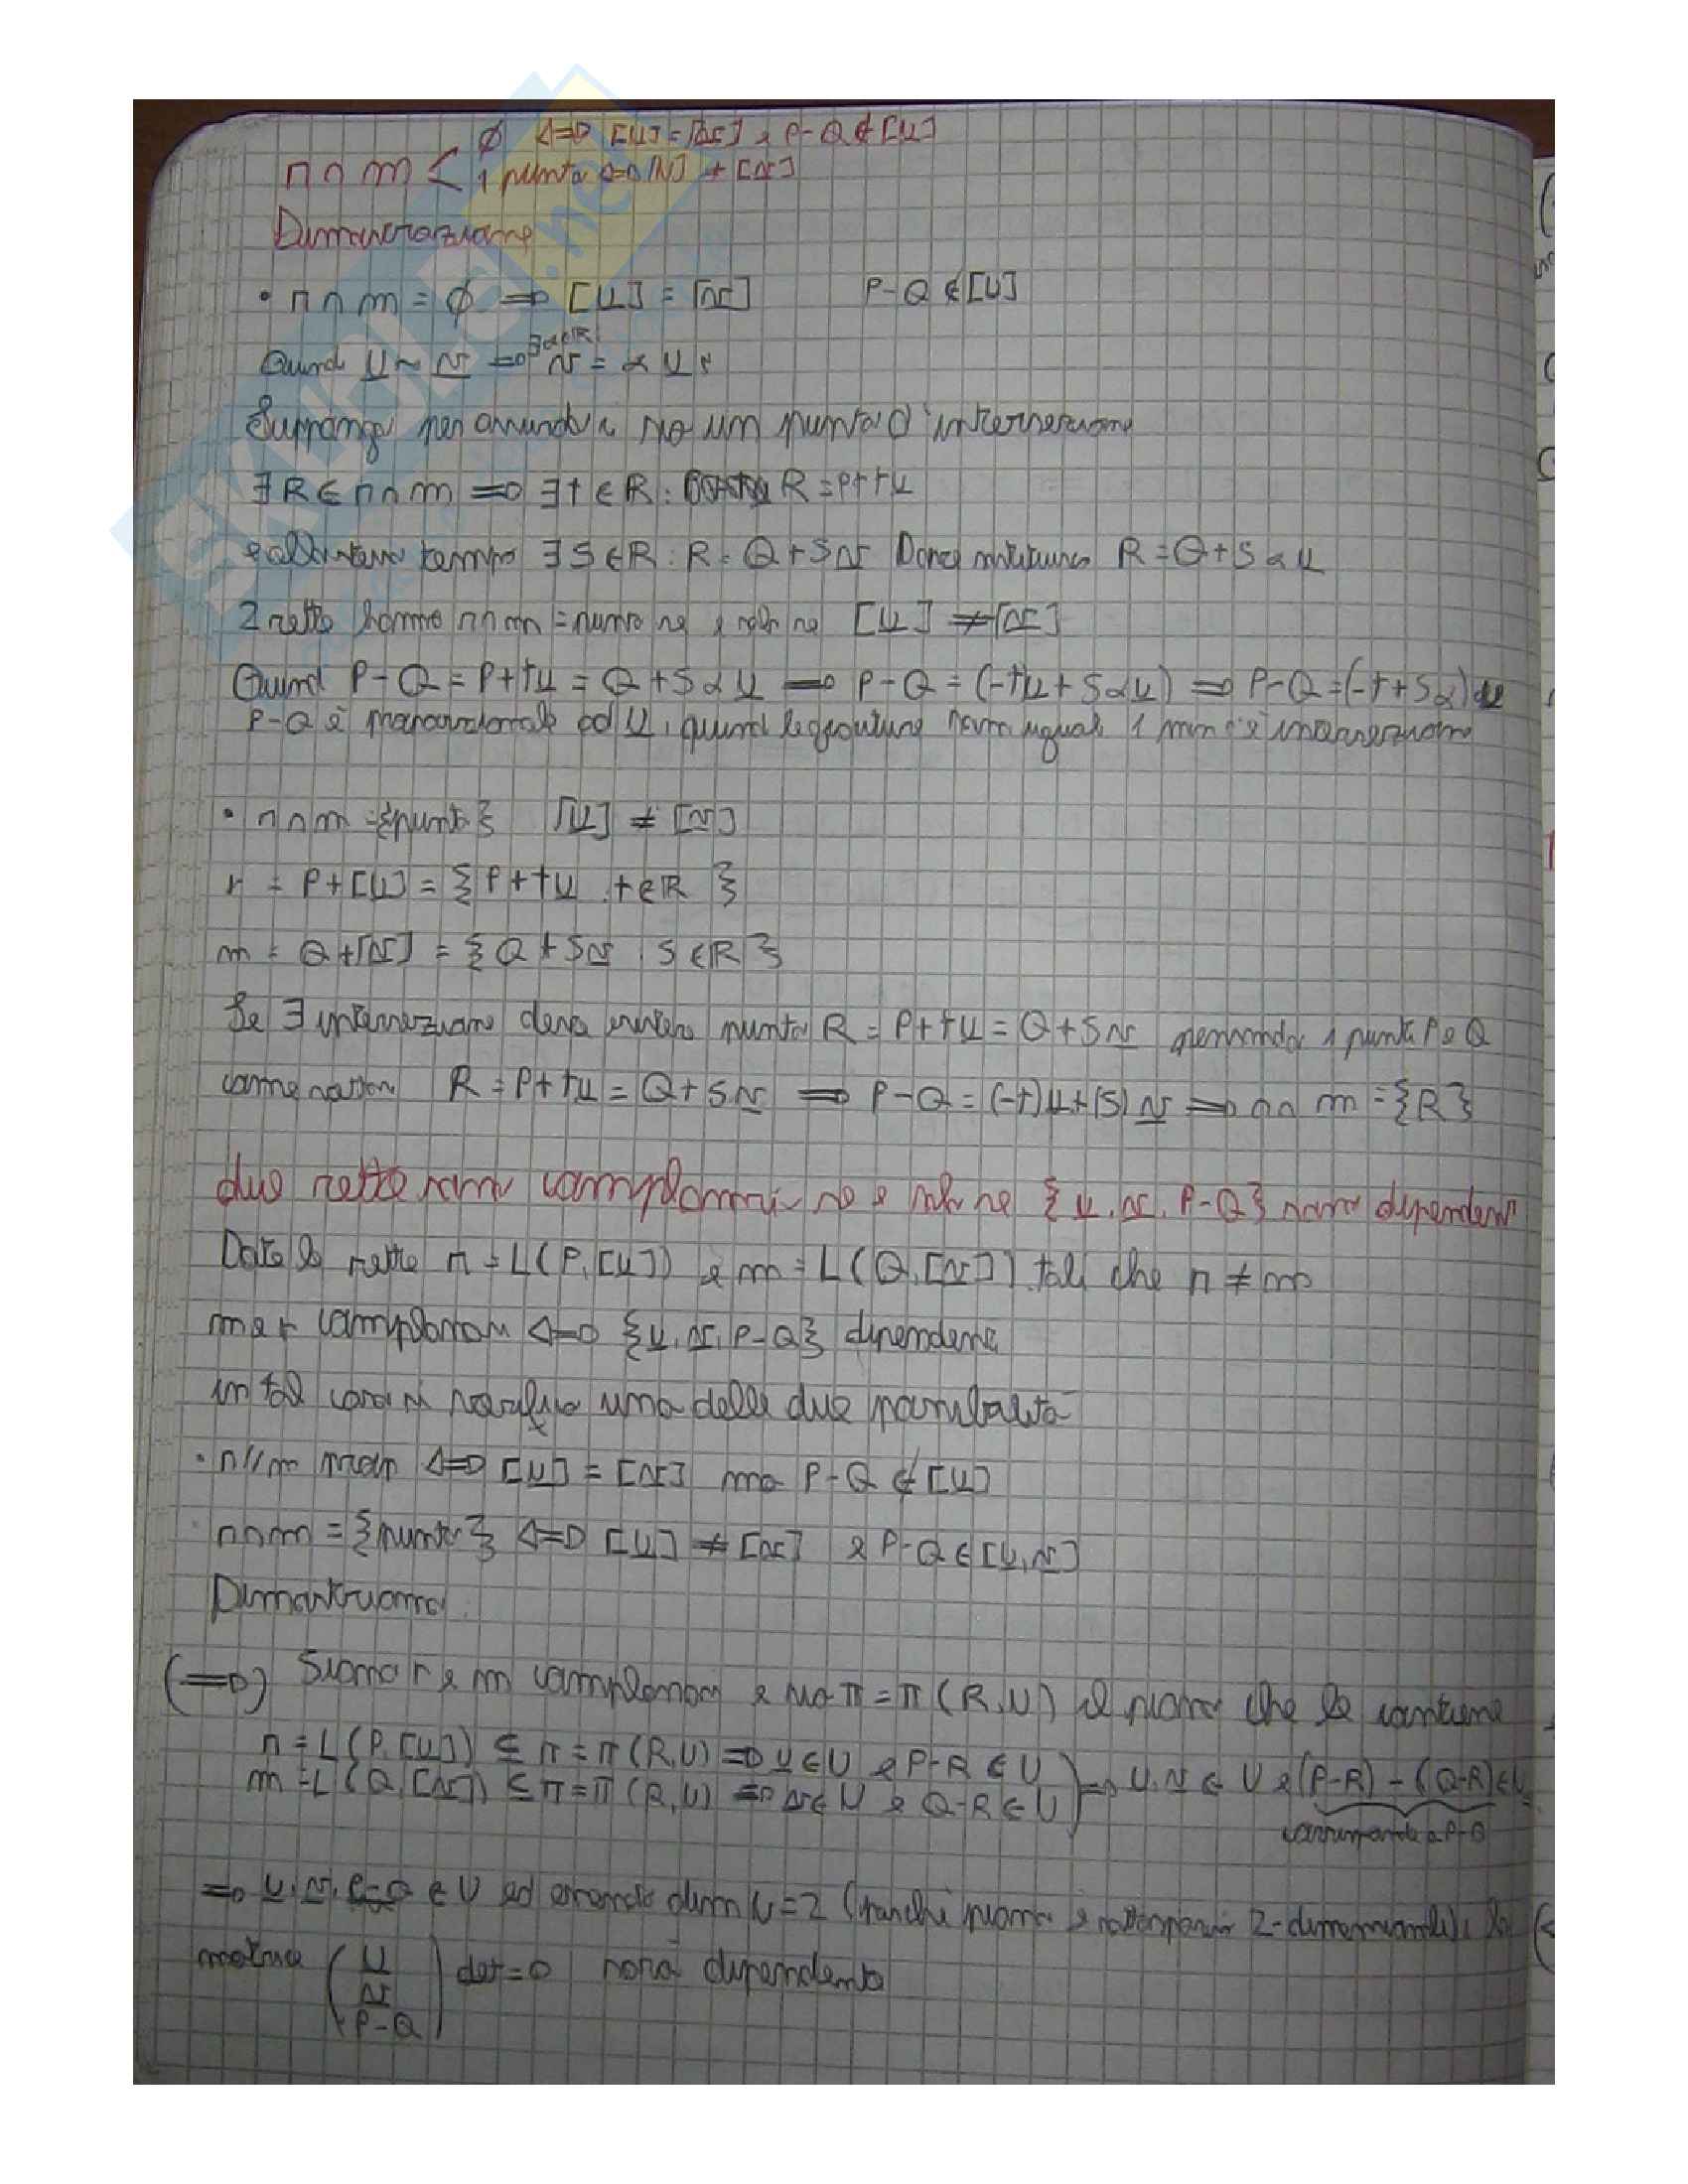 r ∩ m < ∅ ⇔ [u] = [v] e P-Q ∉ [u]
1 punto ⇔ [u] ≠ [v]
Dimostrazione
• r ∩ m = ∅ ⇒ [u] = [v] P-Q ∉ [u]
Quindi u ~ v ⇒ ∃α∈ℝ v = α u
Suppongo per assurdo un punto d'intersezione
∃ R ∈ r ∩ m ⇒ ∃ t ∈ ℝ : R = P + t u
tempo ∃ S ∈ ℝ : R = Q + S v R = Q + S α u
2 rette hanno r ∩ m = punto se e solo se [u] ≠ [v]
Quindi P - Q = P + t u = Q + S α u ⇒ P - Q = (-t u + S α u) ⇒ P - Q = (-t + S α) u
P-Q è proporzionale ad u, quindi le giaciture sono uguali
• r ∩ m = {punto} [u] ≠ [v]
r = P + [u] = { P + t u . t ∈ ℝ }
m = Q + [v] = { Q + S v : S ∈ ℝ }
Se ∃ intersezione deve esistere punto R = P + t u = Q + S v i punti P e Q
come vettori R = P + t u = Q + S v ⇒ P - Q = (-t) u + (S) v ⇒ r ∩ m = {R}
due rette sono complanari se e solo se { u, v, P-Q } sono dipendenti
Date le rette r = L(P, [u]) e m = L(Q, [v]) tali che r ≠ m
m e r complanari ⇔ { u, v, P-Q } dipendente
in tal caso si verifica una delle due possibilità
• r // m ⇔ [u] = [v] ma P - Q ∉ [u]
• r ∩ m = {punto} ⇔ [u] ≠ [v] e P-Q ∈ [u, v]
Dimostriamo
(⇒) Siano r e m complanari e sia π = π (R, U) il piano che le contiene
r = L(P, [u]) ⊆ π = π (R, U) ⇒ u ∈ U e P-R ∈ U
m = L(Q, [v]) ⊆ π = π (R, U) ⇒ v ∈ U e Q-R ∈ U ) ⇒ u, v ∈ U e (P-R) - (Q-R) ∈ U
corrisponde a P-Q
⇒ u, v, P-Q ∈ U ed essendo dim U = 2 (perché piano è sottospazio 2-dimensionale), la
matrice ( u v P-Q ) det = 0 sarà dipendente